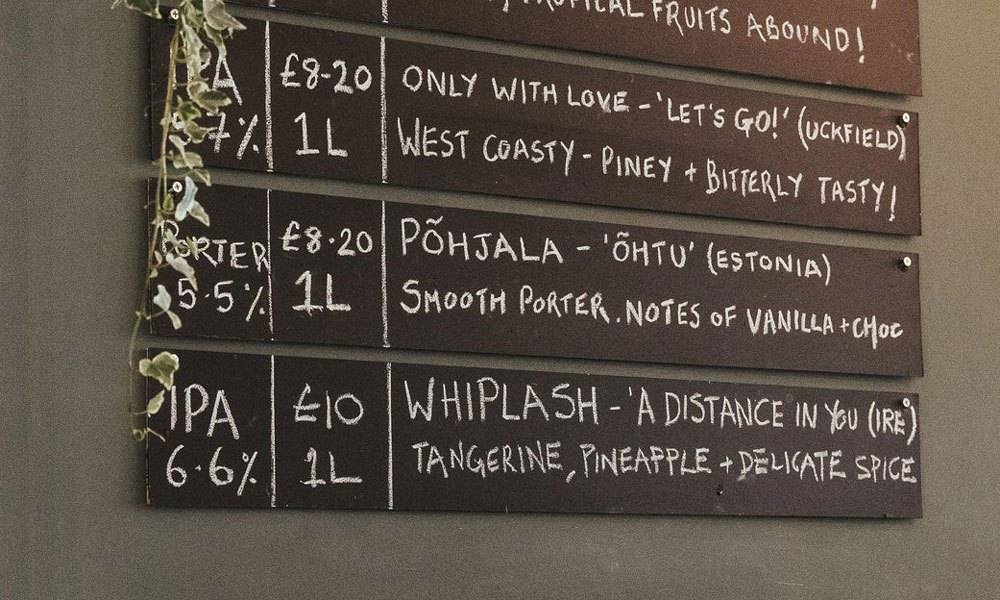 TROPICAL FRUITS ABOUND!
PA £8-20 ONLY WITH LOVE - 'LET'S GO!' (UCKFIELD)
7% 1L WEST COASTY - PINEY + BITTERLY TASTY!
PORTER £8.20 PÕHJALA - 'ÕHTU' (ESTONIA)
5.5% 1L SMOOTH PORTER. NOTES OF VANILLA + CHOC
IPA £10 WHIPLASH - 'A DISTANCE IN YOU (IRE)
6.6% 1L TANGERINE, PINEAPPLE + DELICATE SPICE